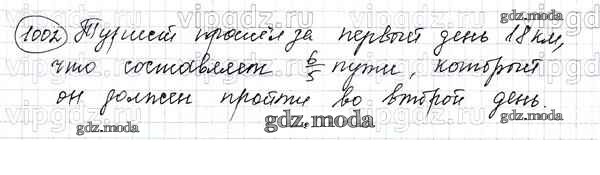 1002 Турист прошёл за первый день 18 км,
что составляет 6/5 пути, который
он должен пройти во второй день.
gdz.moda
gdz.moda
gdz.moda
gdz.moda